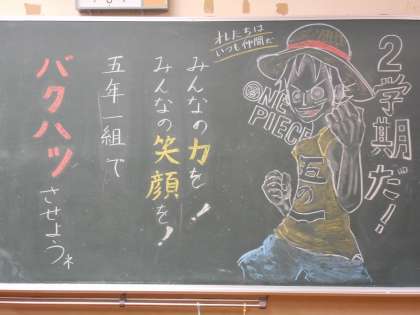 2学期だ!
オレたちは
いつも仲間だ
ONE
PIECE
五の一
みんなの力を!
みんなの笑顔を!
五年一組で
バクハツさせようネ